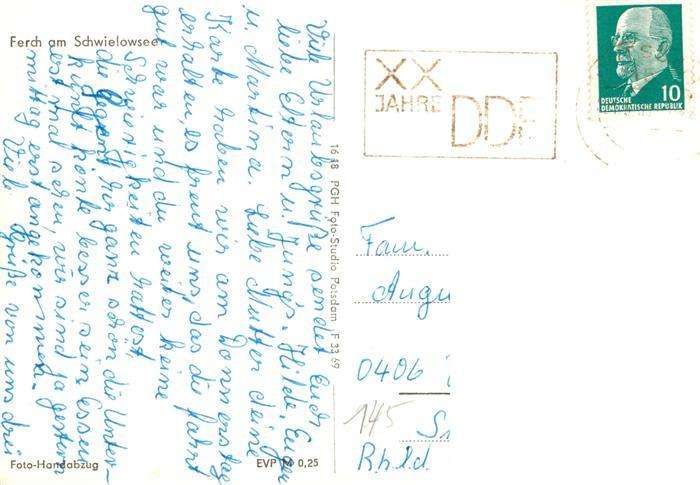 Ferch am Schwielowsee
Viele Urlaubsgrüße sendet Euch
liebe Eltern u. Jung's. Hilde, Euger
u. Martina. Liebe Mutter deine
Karte haben wir am Donnerstag
erhalten es freut uns das die fahrt
gut war und du weiter keine
Schwierigkeiten hattest
die Gegend hir ganz schön die Unter-
kunft könte besser sein Essen
erstmal sehen, wir sind ja gestern
mittag erst angekommen.
Viele Grüße von uns drei
Foto-Handabzug
EVP M 0,25
1618 PGH Foto-Studio Potsdam F 33 69
XX
JAHRE DDR
10
DEUTSCHE
DEMOKRATISCHE REPUBLIK
Fam.
Augu
0406
145
Rhld.